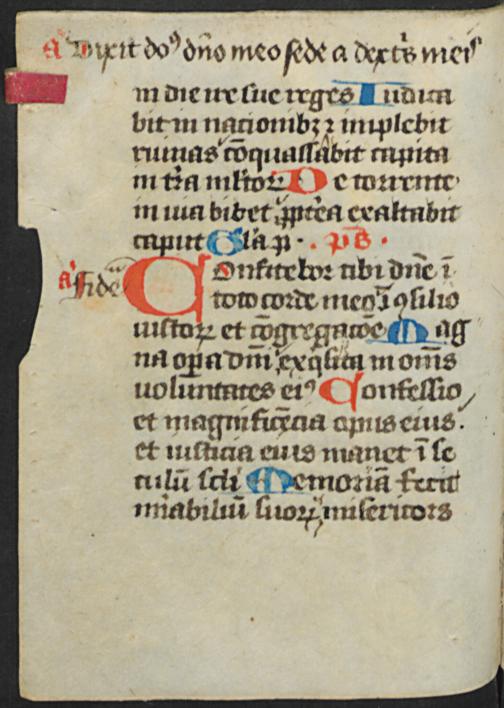 a᷎ Dixit do⁹ dño meo sede a dext᷎s meis
in die ire sue reges Iudica
bit in nacionibꝫ ⁊ implebit
ruinas cōquassabit capita
in t᷎ra m̄ltoꝝ De torrente
in uia bibet ꝓpt̄ea exaltabit
caput Gl᷎a p᷎ . p̄s .
a᷎ Fidel᷎
Confitebor tibi dñe ī
toto corde meo ī ꝯsilio
iustoꝝ et cōgregacōe Mag
na oꝑa dñi exq᷎sita in om̄s
voluntates ei⁹ Confessio
et magnificēcia opus eius .
et iusticia eius manet ī se
culū scl̄i Memoriā fecit
mirabiliū suoꝝ misericors